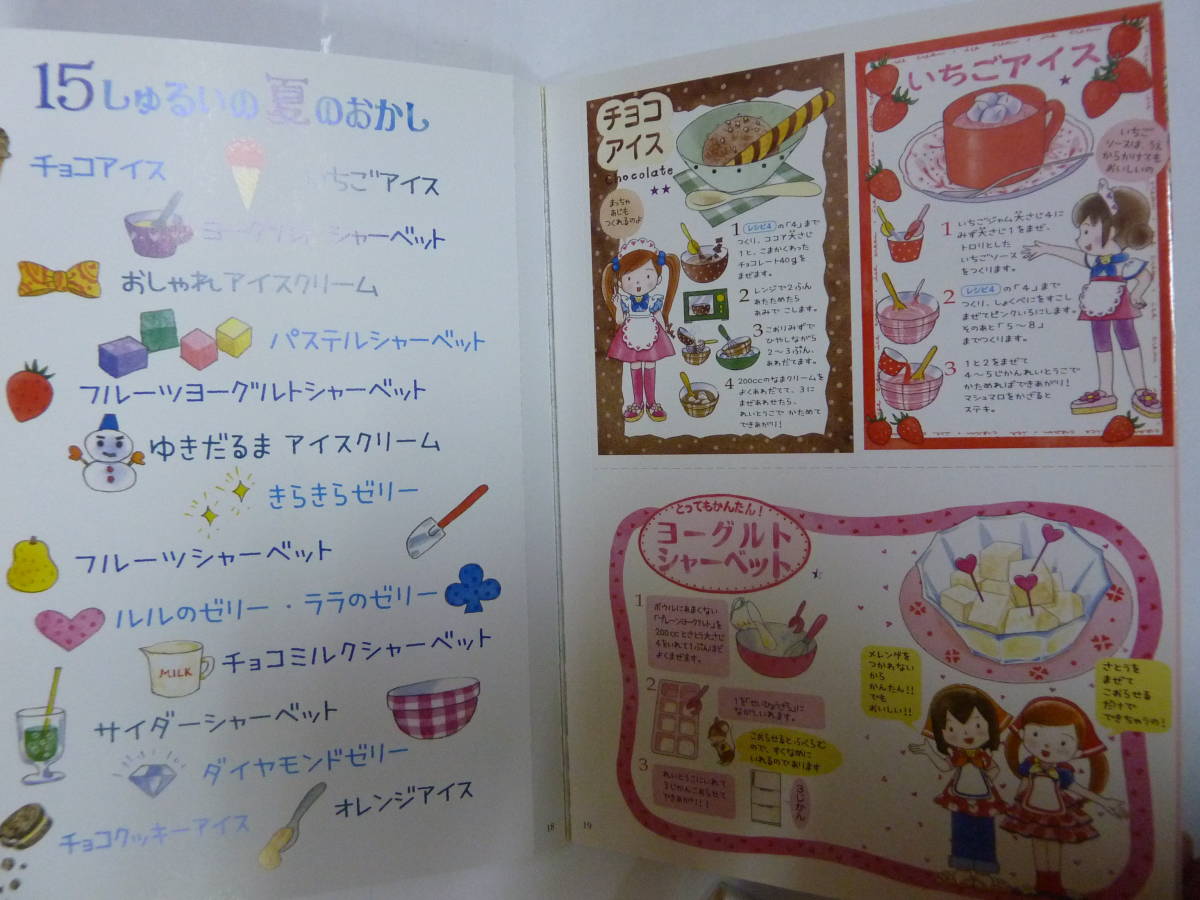 15しゅるいの夏のおかし
チョコアイス
いちごアイス
ヨーグルトシャーベット
おしゃれアイスクリーム
パステルシャーベット
フルーツヨーグルトシャーベット
ゆきだるま アイスクリーム
きらきらゼリー
フルーツシャーベット
ルルのゼリー・ララのゼリー
MILK
チョコミルクシャーベット
サイダーシャーベット
ダイヤモンドゼリー
オレンジアイス
チョコクッキーアイス
18
チョコ
アイス
chocolate
★★
まっちゃ
あじも
つくれるのよ
1 レシピ4の「4」まで
つくり、ココア大さじ
1と、こまかくわった
チョコレート40gを
まぜます。
2 レンジで2ぷん
あたためたら
あみで こします。
3 こおりみずで
ひやしながら
2〜3ぷん、
あわだてます。
4 200ccのなまクリームを
よくあわだてて、3に
まぜあわせたら、
れいとうこで かためて
できあがり!
いちごアイス
★
いちご
ソースは、うえ
からかけても
おいしいの
1 いちごジャム大さじ4に
みず大さじ1をまぜ、
トロリとした
いちごソース
をつくります。
2 レシピ4の「4」まで
つくり、しょくべにをすこし
まぜてピンクいろにします。
そのあと「5〜8」
までつくります。
3 1と2をまぜて
4〜5じかんれいとうこで
かためればできあがり!
マシュマロをかざると
ステキ。
とってもかんたん!
ヨーグルト
シャーベット
1
ボウルにあまくない
「プレーンヨーグルト」を
200ccとさとう大さじ
4をいれて1ぷんほど
よくまぜます。
2
1を「せいひょうざら」に
ながしいれます。
こおらせるとふくらむ
ので、すくなめに
いれるのであります
3
れいとうこにいれて
3じかんこおらせて
できあがり!!
3じかん
メレンゲを
つかわない
から
かんたん!!
でも
おいしい!!
さとうを
まぜて
こおらせる
だけで
できちゃうの!
19